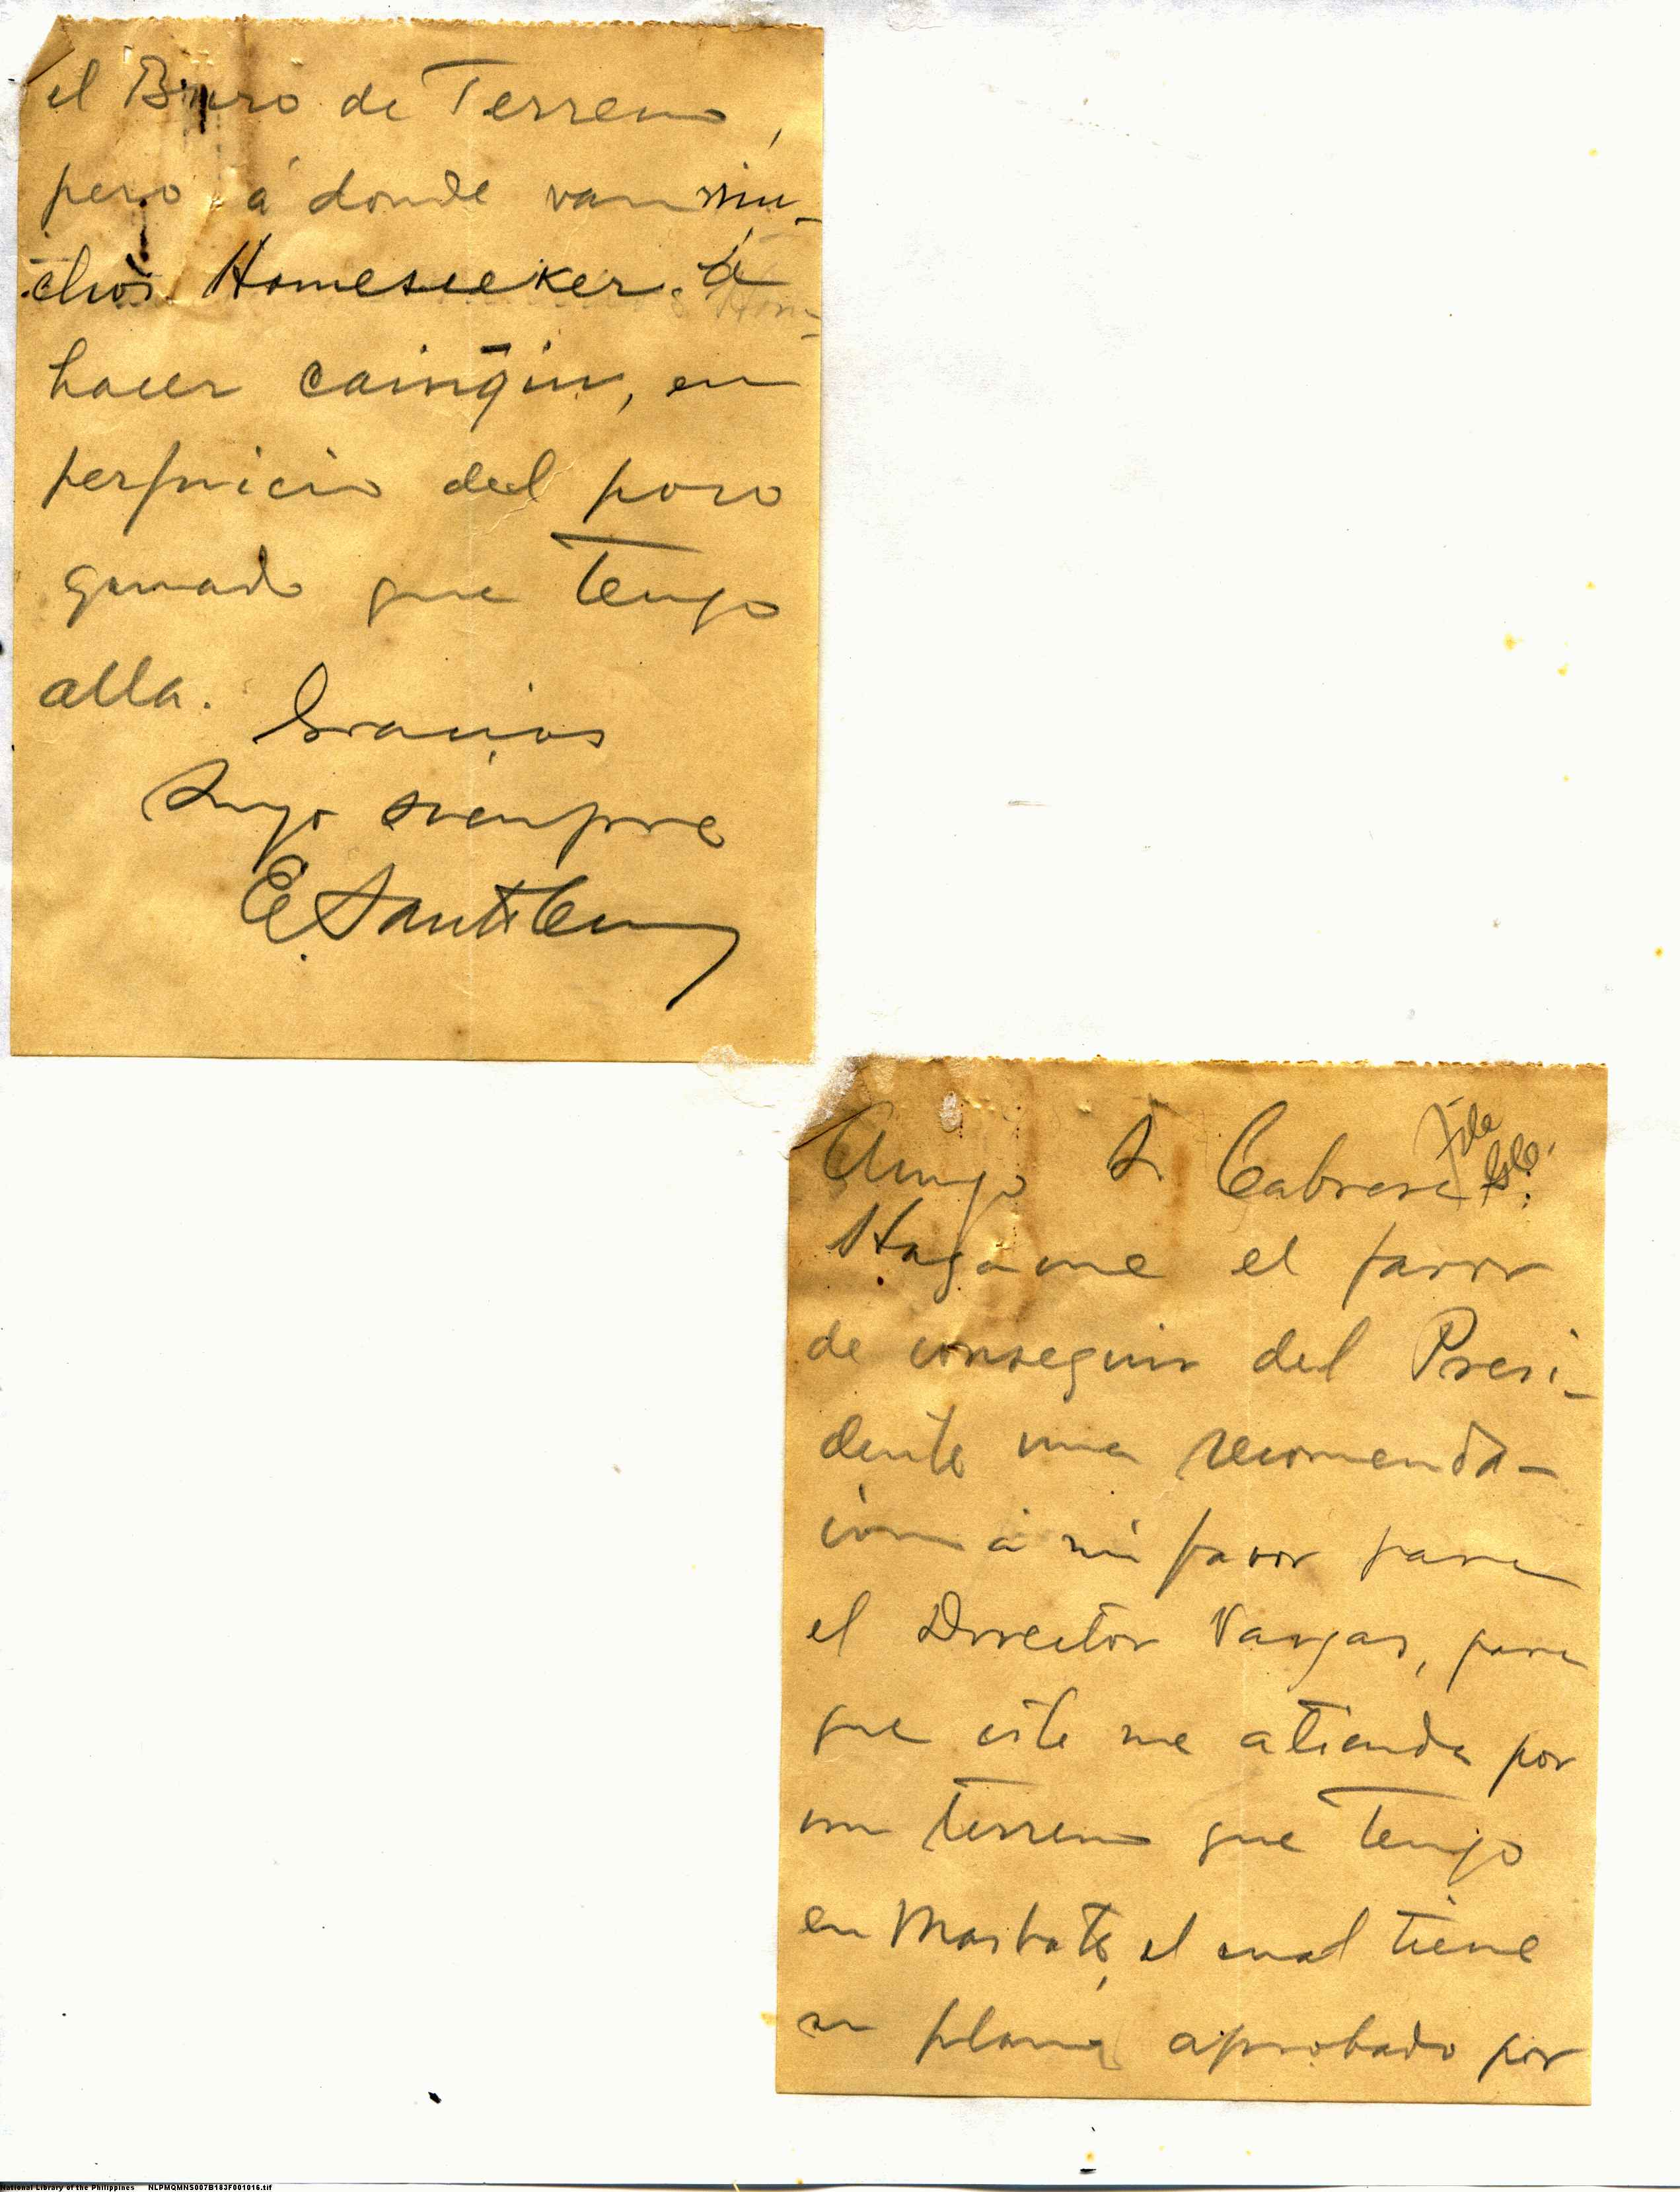 Amigo Sr Cabrera
File
Hagame el favor
de conseguir del Presi-
dente una recomenda-
cion á mi favor para
el Director Vargas, para
que este me atienda por
un terreno que tengo
en Masbate, el cual tiene
su plano aprobado por
el Buro de Terreno,
pero á donde van mu-
chos Homeseeker á
hacer caiñgin, en
perjuicio del poco
ganado que tengo
alla.
Gracias
Suyo siempre
National Library of the Philippines NLPMQMNS007B183F001016.tif